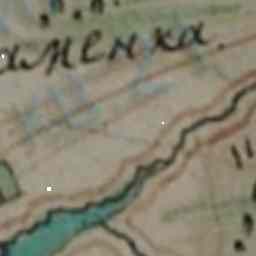 аменка.